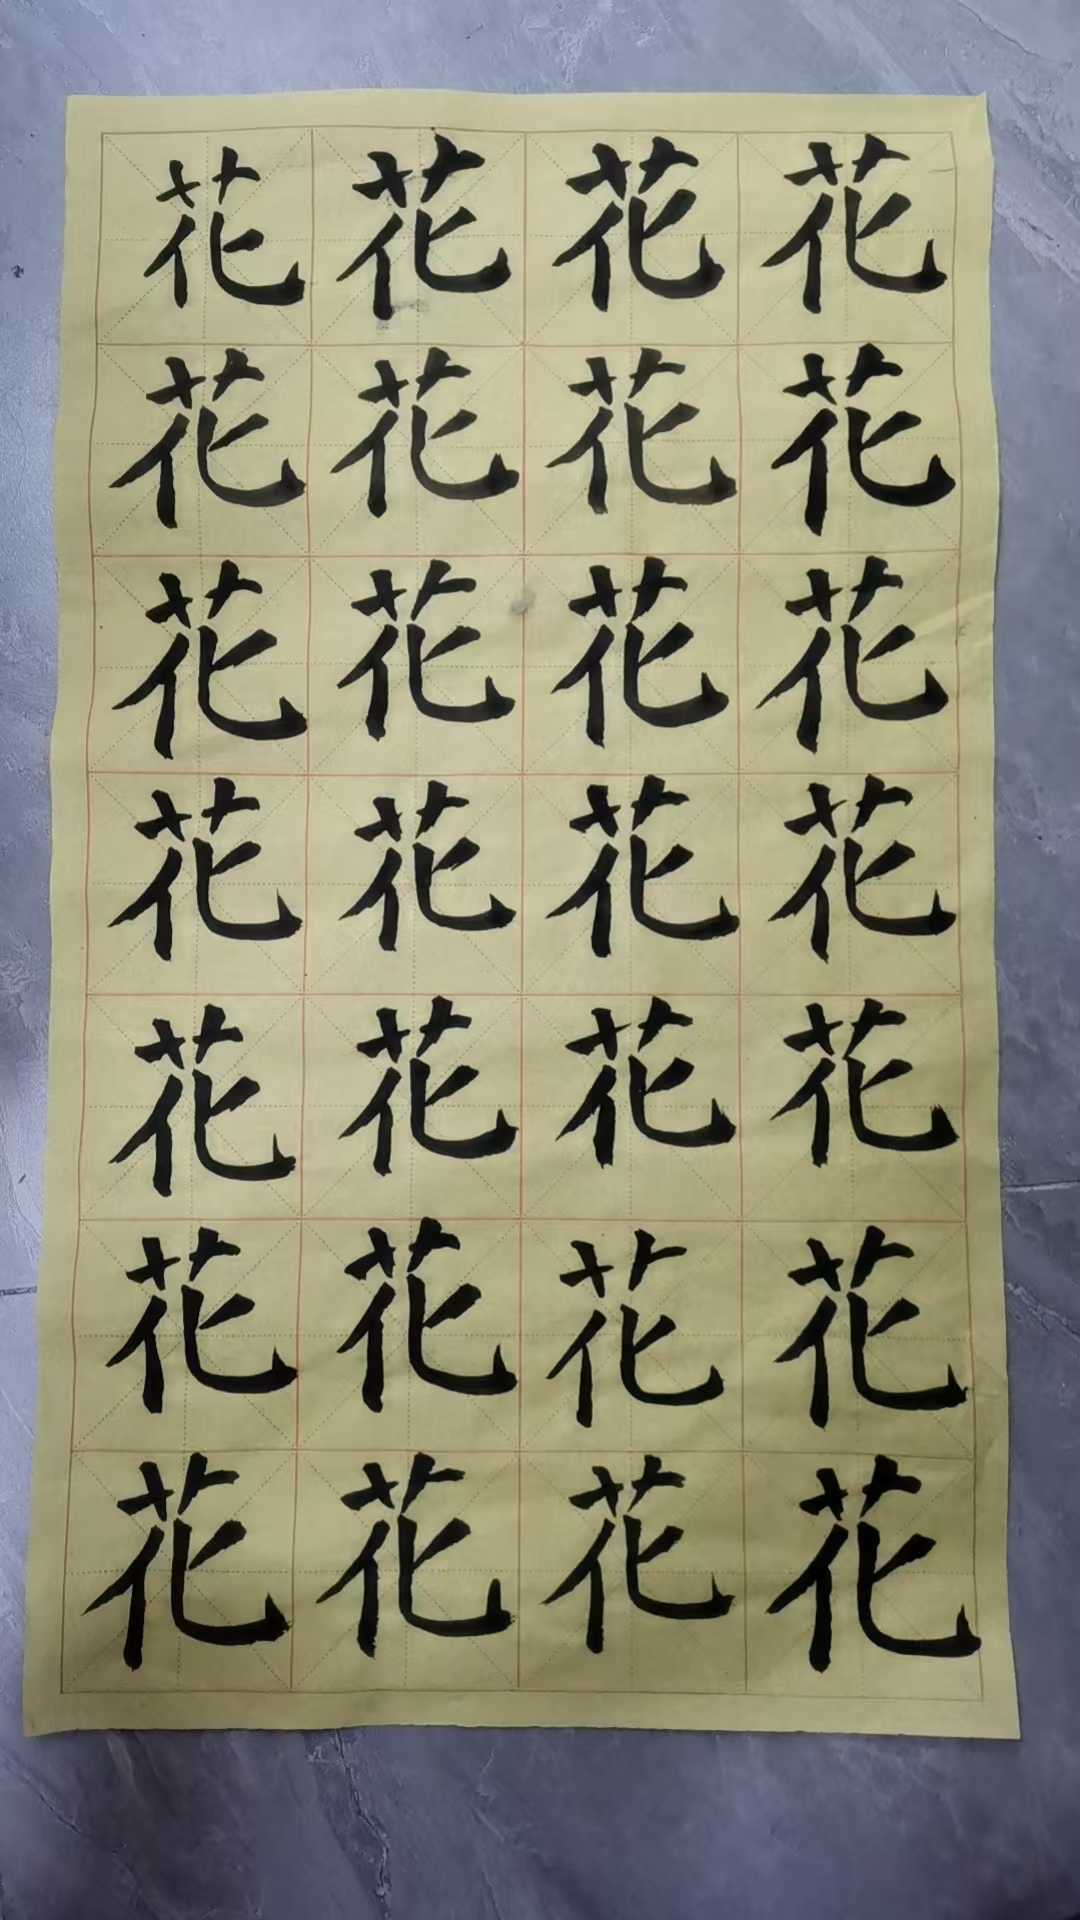 花花花花
花花花花
花花花花
花花花花
花花花花
花花花花
花花花花